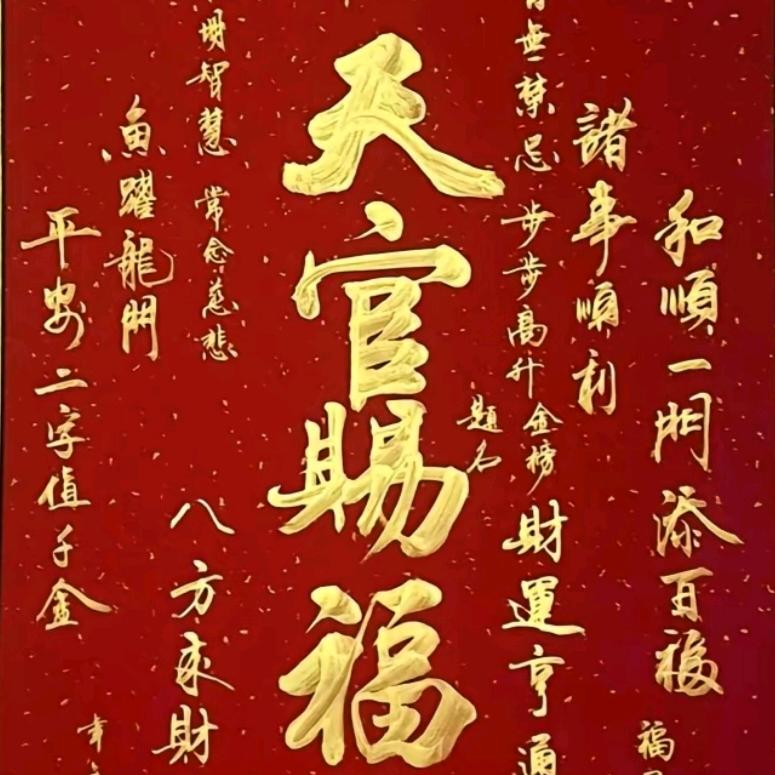 和順一門添百福
福
諸事順利
無禁忌
步步高升
金榜
題名
財運亨通
天官賜福
智慧
常念慈悲
八方來財
魚躍龍門
平安二字值千金